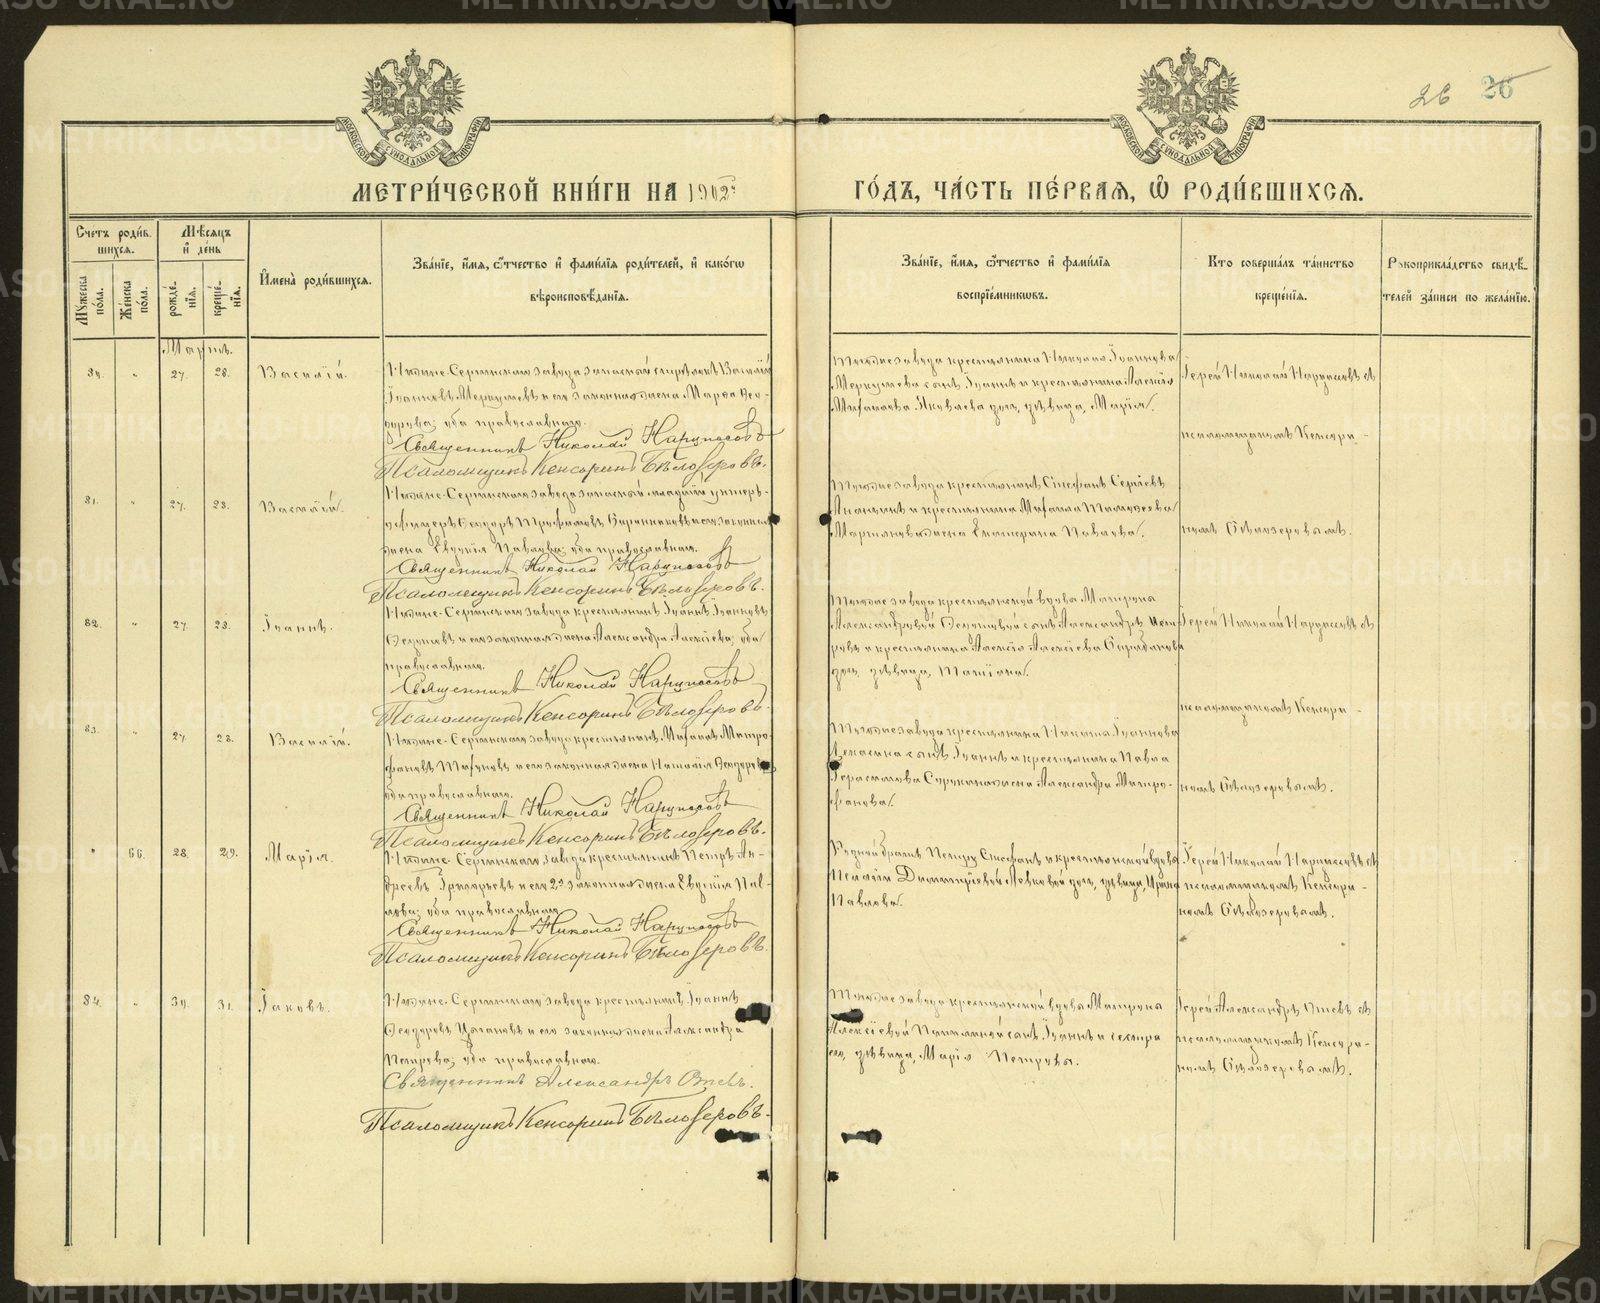 26 26
МЕТРИ́ЧЕСКОЙ КНИ́ГИ НА 1902й ГО́ДЪ, ЧА́СТЬ ПЕ́РВАЯ, Ѡ РОДИ́ВШИХСЯ.
Счетъ роди́вшихся.
Мꙋ́жеска по́ла.
Же́нска по́ла.
Мѣ́сяцъ и де́нь
рожде́нїя.
креще́нїя.
Имена̀ роди́вшихся.
Зва́нїе, и́мя, ѻ́тчество и фами́лїя роди́телей, и како́гѡ
вѣроисповѣ́данїя.
Зва́нїе, и́мя, ѻ́тчество и фами́лїя
воспрїе́мникѡвъ.
Кто соверша́лъ та́инство
креще́нїя.
Рꙋкоприкла́дство свидѣ́телей за́писи по жела́нїю.
Мартъ.
27. 28. Василій.
Нижне-Сергинскаго завода запасный стрѣлокъ Василій
Іоанновъ Меркушевъ и его законная жена Марѳа Ѳео-
дорова; оба православные.
Священникъ Николай Нарциссовъ
Псаломщикъ Кенсоринъ Бѣлозеровъ.
Тогоже завода крестьянина Іоаннова
Меркушева сынъ Іоаннъ и крестьянина Алексія
Яковлева дочь, дѣвица, Марія.
Іерей Николай Нарциссовъ съ
псаломщикомъ Кенсори-
81. " 27. 28. Василій.
Нижне-Сергинскаго завода запасный младшій унтеръ-
офицеръ Ѳеодоръ Трофимовъ и его законная
жена Евдокія Павлова; оба православные.
Священникъ Николай Нарциссовъ
Псаломщикъ Кенсоринъ Бѣлозеровъ.
Тогоже завода крестьянинъ Стефанъ Сергіевъ
и крестьянина Михаила Тимоѳеева
жена Екатерина Павлова.
номъ Бѣлозеровымъ.
82. " 27. 28. Іоаннъ.
Нижне-Сергинскаго завода крестьянинъ Іоаннъ Іоанновъ
и его законная жена Александра Алексіева; оба
православные.
Священникъ Николай Нарциссовъ
Псаломщикъ Кенсоринъ Бѣлозеровъ.
Тогоже завода крестьянской вдовы
Александровой сынъ Александръ
и крестьянина Алексія Алексіева
дочь, дѣвица, Татіана.
Іерей Николай Нарциссовъ съ
псаломщикомъ Кенсори-
83. " 27. 28. Василій.
Нижне-Сергинскаго завода крестьянинъ Михаилъ Митро-
фановъ и его законная жена Наталія Ѳеодорова;
оба православные.
Священникъ Николай Нарциссовъ
Псаломщикъ Кенсоринъ Бѣлозеровъ.
Тогоже завода крестьянина Никиты Іоаннова
сынъ Іоаннъ и крестьянина Павла
Герасимова жена Александра Митро-
фанова.
номъ Бѣлозеровымъ.
" 66. 28. 29. Марія.
Нижне-Сергинскаго завода крестьянинъ Петръ Ан-
дреевъ Григорьевъ и его законная жена Евдокія Пав-
лова; оба православные.
Священникъ Николай Нарциссовъ
Псаломщикъ Кенсоринъ Бѣлозеровъ.
Родной братъ Петру Стефанъ и крестьянской вдовы
Пелагіи Димитріевой дочь, дѣвица, Ирина
Павлова.
Іерей Николай Нарциссовъ съ
псаломщикомъ Кенсори-
номъ Бѣлозеровымъ.
84. " 30. 31. Іаковъ.
Нижне-Сергинскаго завода крестьянинъ Іоаннъ
Ѳеодоровъ Цыгановъ и его законная жена Александра
Петрова; оба православные.
Священникъ Александръ
Псаломщикъ Кенсоринъ Бѣлозеровъ.
Тогоже завода крестьянской вдовы
Алексіевой сынъ Іоаннъ и сестра
его, дѣвица, Марія Петрова.
Іерей Александръ съ
псаломщикомъ Кенсори-
номъ Бѣлозеровымъ.
METRIKI.GASO-URAL.RU